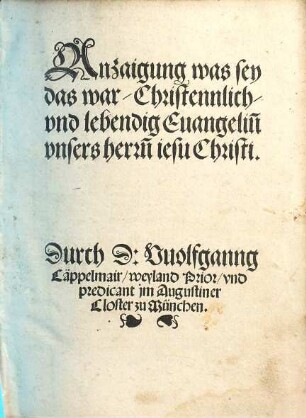 Anzaigung was sey
das war / Christennlich /
vnd lebendig Euangeliū
vnsers herrn̄ iesu Christi.
Durch D: Vuolfganng
Cäppelmair / weyland Prior / vnd
predicant jm Augustiner
Closter zu München.